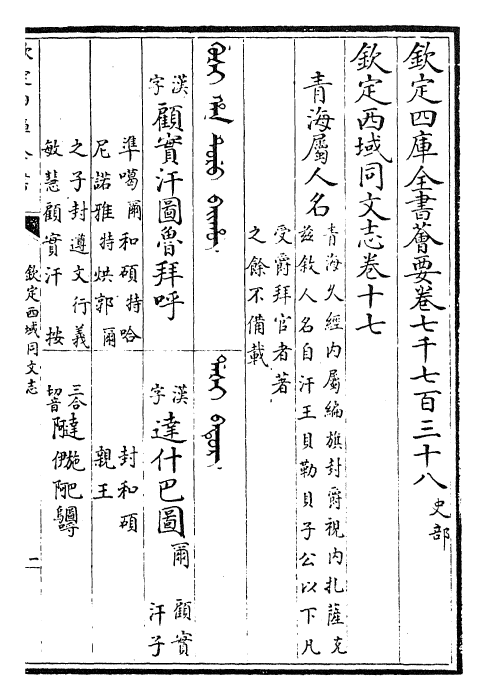 欽定四庫全書薈要卷七千七百三十八 史部
欽定西域同文志卷十七
青海屬人名
青海久經内屬編旗封爵視内扎薩克
兹敘人名自汗王貝勒貝子公以下凡
受爵拜官者著
之餘不備載
漢字 顧實汗圖魯拜呼
準噶爾和碩特哈
尼諾雅特烘郭爾
之子封遵文行義
敏慧顧實汗 按
漢字 達什巴圖爾 顧實汗子
封和碩
親王
三合切音
欽定西域同文志